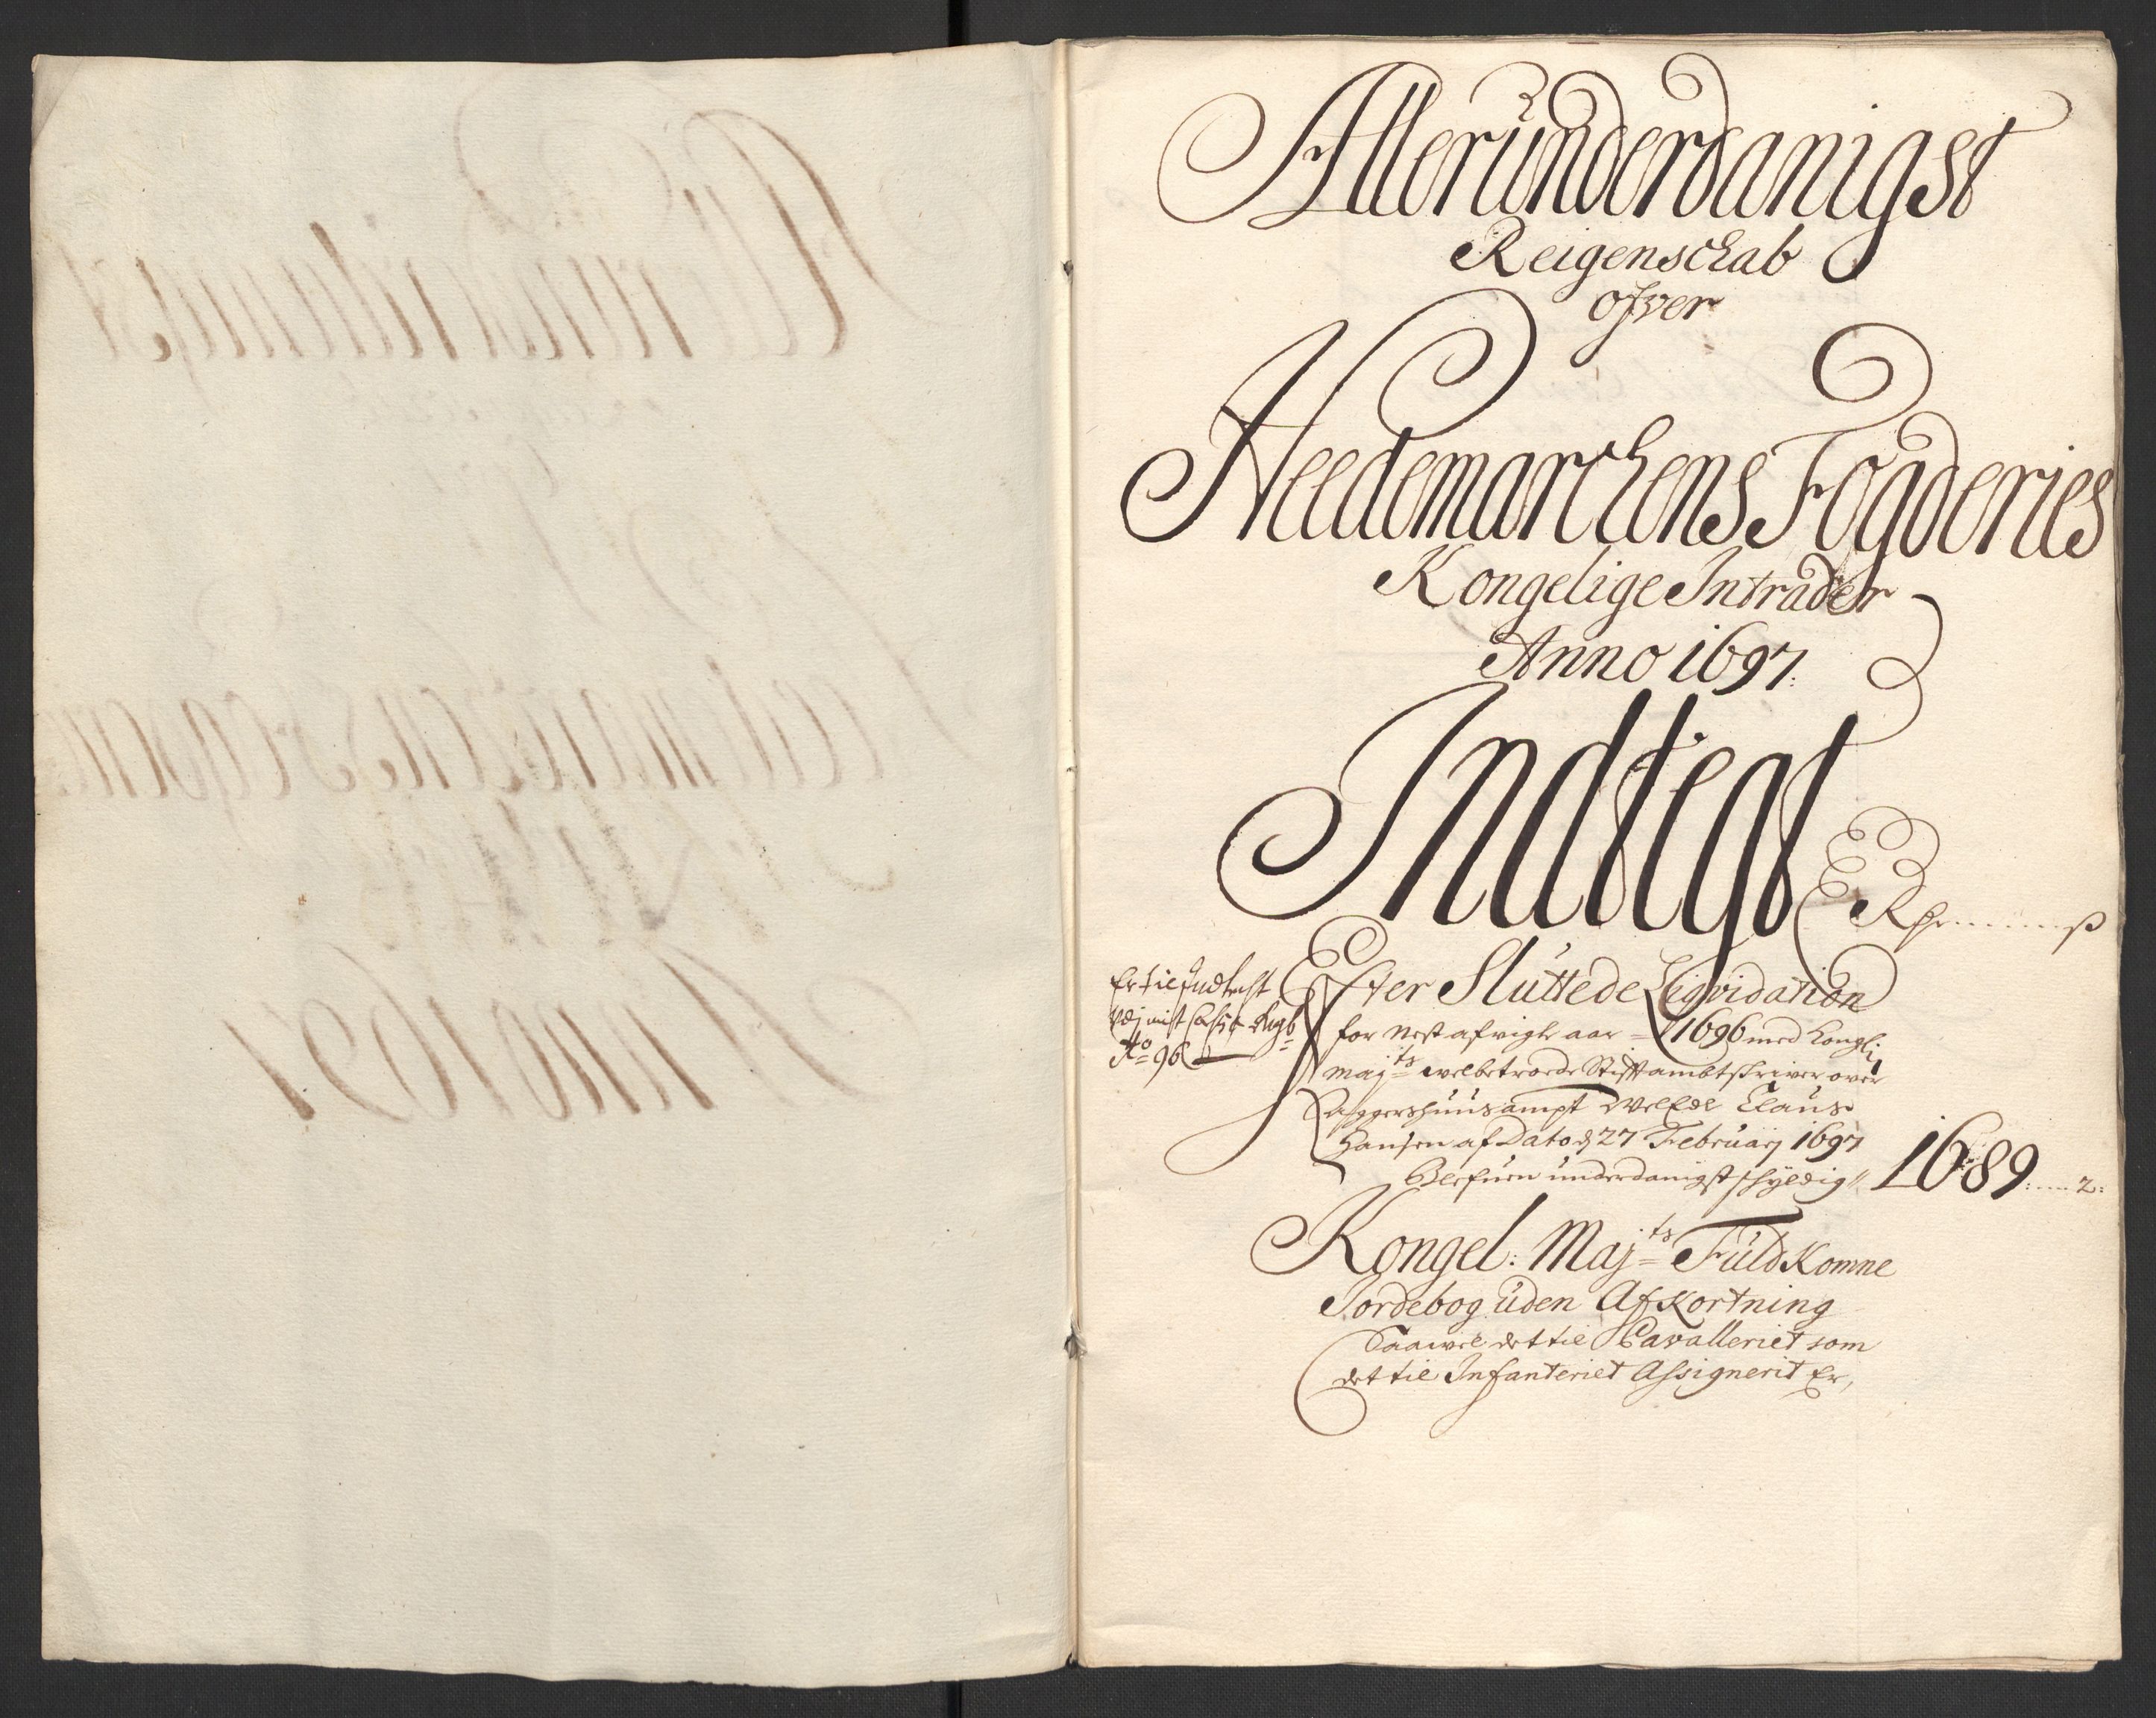 Allerunderdanigst
Reigenschab
ofver
Heedemarchens Fogderies
Kongelige Intrader
Anno 1697:
Indtegt
Rdr ß
Er til Indtecht
A:o 96
Efter Sluttede Liqvidation
for nest afvigte aar = 1696 med Kongl:
Maj:ts welbetroede Stiftambtskriver over
Aggershuus ampt Wel Edl Claus
Hansen af Dato d 27 Februarj 1697
Blefuen underdanigst schyldig 1689 2:
Kongel: Maj:ts Fuldkomne
Jordebog uden Afkortning
Saawel det til Cavalleriet som
det til Infanteriet Assignerit Er,